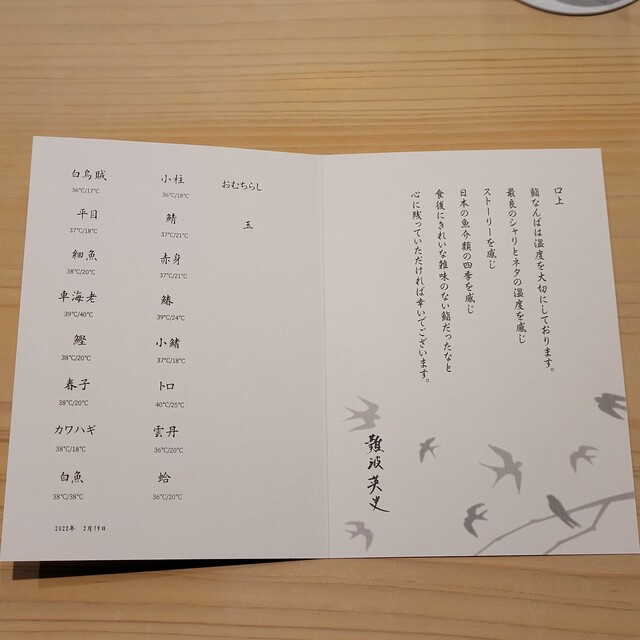 白烏賊
36℃/17℃
平目
37℃/18℃
細魚
38℃/20℃
車海老
39℃/40℃
鰹
38℃/20℃
春子
38℃/20℃
カワハギ
38℃/18℃
白魚
38℃/38℃
2022年 2月19日
小柱
36℃/18℃
鯖
37℃/21℃
赤身
37℃/21℃
鰆
39℃/24℃
小鰭
37℃/18℃
トロ
40℃/25℃
雲丹
36℃/20℃
蛤
36℃/20℃
おむちらし
玉
口上
鮨なんばは温度を大切にしております。
最良のシャリとネタの温度を感じ
ストーリーを感じ
日本の魚介類の四季を感じ
食後にきれいな雑味のない鮨だったなと
心に残っていただければ幸いでございます。
難波英史